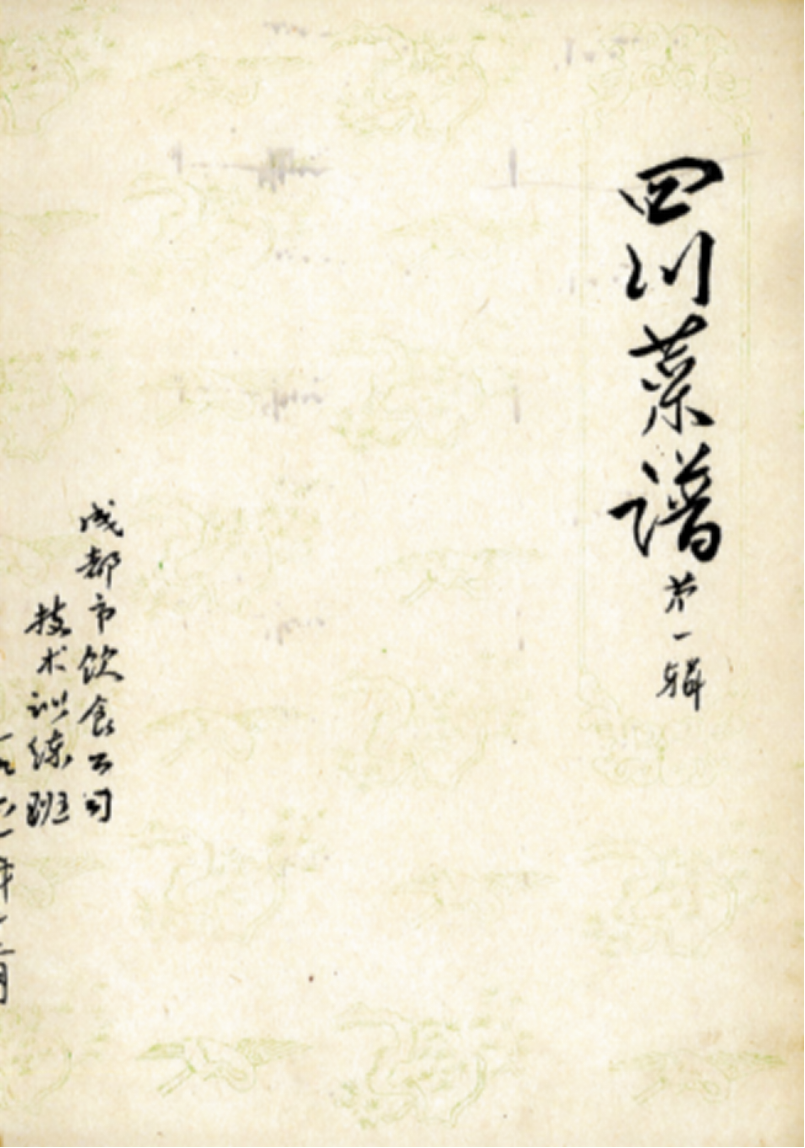 四川菜谱 第一辑
成都市饮食公司
技术训练班